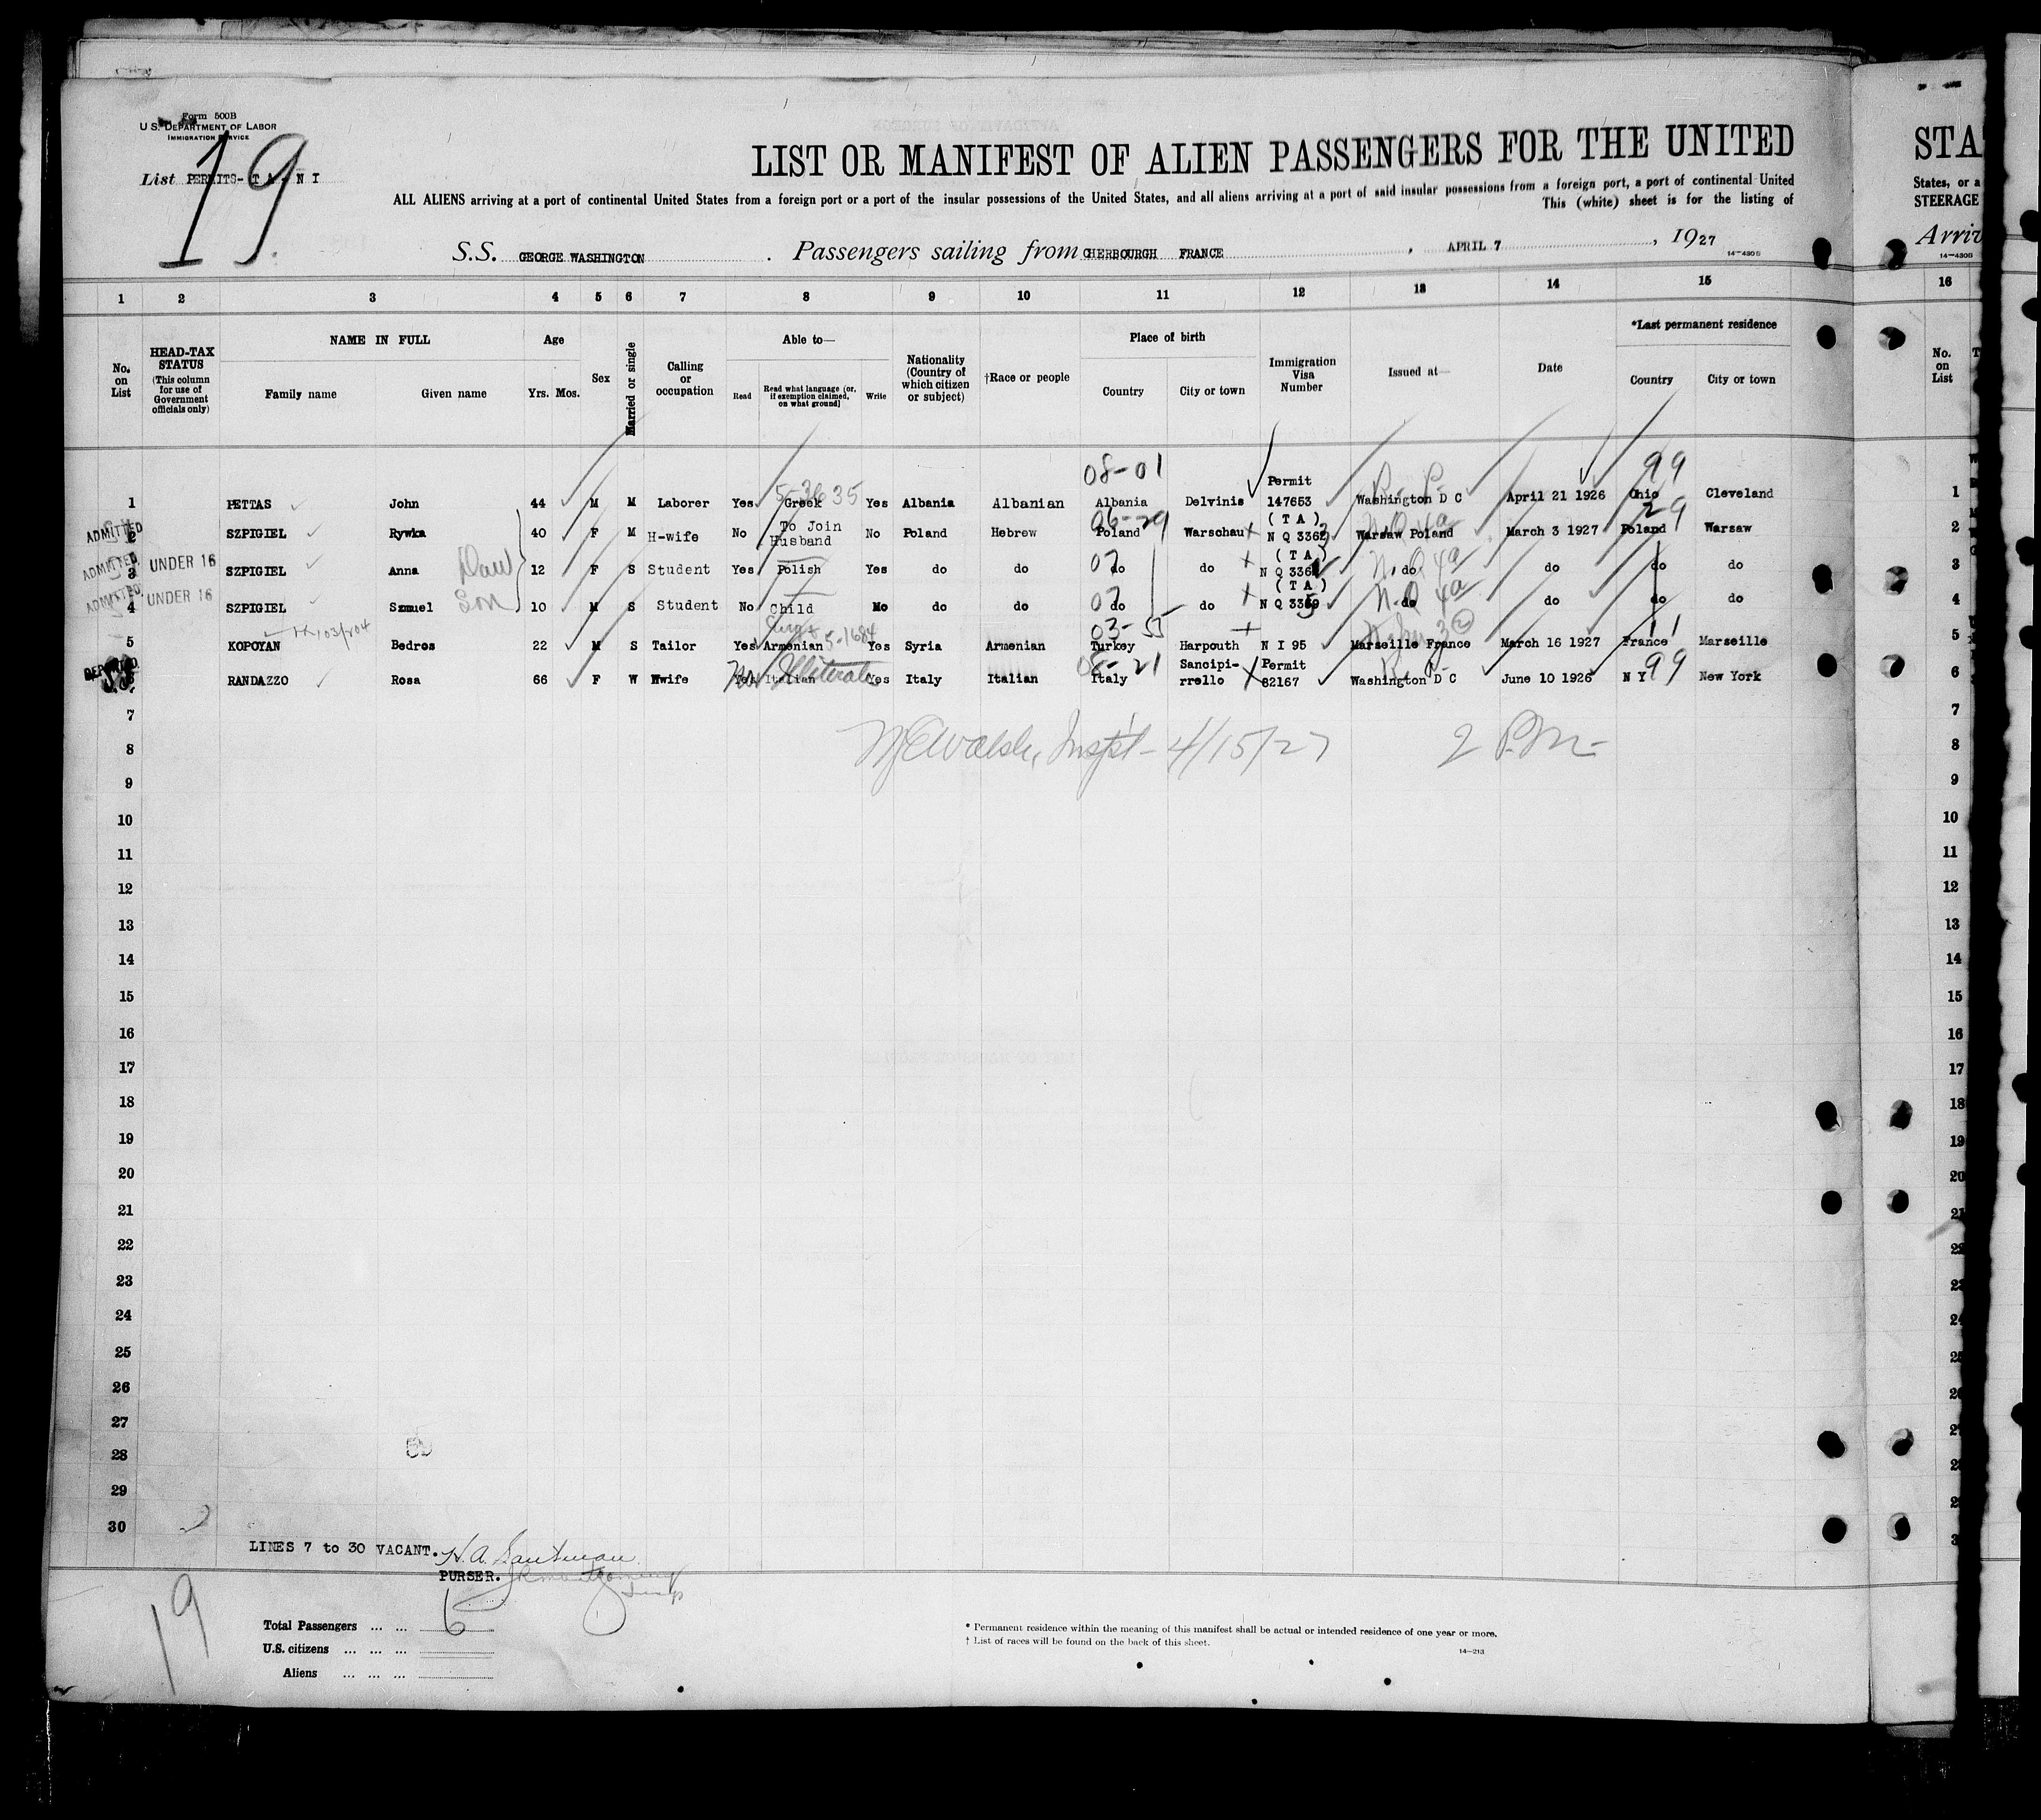 Form 500B
U.S. DEPARTMENT OF LABOR
IMMIGRATION SERVICE
List PERMITS- T A - N I
19
LIST OR MANIFEST OF ALIEN PASSENGERS FOR THE UNITED
ALL ALIENS arriving at a port of continental United States from a foreign port or a port of the insular possessions of the United States, and all aliens arriving at a port of said insular possessions from a foreign port, a port of continental United
This (white) sheet is for the listing of
S.S. GEORGE WASHINGTON . Passengers sailing from CHERBOURGH FRANCE , APRIL 7 , 1927
14-430B
1 2 3 4 5 6 7 8 9 10 11 12 13 14 15
No. on List
HEAD-TAX STATUS (This column for use of Government officials only)
NAME IN FULL Family name Given name
Age Yrs. Mos.
Sex
Married or single
Calling or occupation
Able to— Read Read what language [or, if exemption claimed, on what ground] Write
Nationality (Country of which citizen or subject)
†Race or people
Place of birth Country City or town
Immigration Visa Number
Issued at—
Date
*Last permanent residence Country City or town
08-01 99
1 PETTAS John 44 M M Laborer Yes Greek 5-3635 Yes Albania Albanian Albania Delvinis Permit 147653 Washington D C April 21 1926 Ohio Cleveland
06-29 29
ADMITTED 2 SZPIGIEL Rywka 40 F M H-wife No To Join Husband No Poland Hebrew Poland Warschau (TA) N Q 3363 Warsaw Poland March 3 1927 Poland Warsaw
ADMITTED 3 UNDER 16 SZPIGIEL Anna Dau 12 F S Student Yes Polish Yes do do do do (TA) N Q 336 do do do do
ADMITTED 4 UNDER 16 SZPIGIEL Szmuel Son 10 M S Student No Child No do do do do (TA) N Q do do do do
03-55 11
5 KOPOYAN Bedros 22 M S Tailor Yes Armenian 5-1684 Yes Syria Armenian Turkey Harpouth N I 95 Marseille France March 16 1927 France Marseille
08-21 99
DEPORTED 6 RANDAZZO Rosa 66 F W Hwife No Yes Italian Illiterate Yes Italy Italian Italy Sancipi-rrello Permit 82167 Washington D C June 10 1926 N Y New York
7
8 Walsh, Insp't - 4/15/27 2 P.M.
9
10
11
12
13
14
15
16
17
18
19
20
21
22
23
24
25
26
27
28
29
30
LINES 7 to 30 VACANT.
PURSER.
19
Total Passengers ... ... 6
U.S. citizens ... ... ...
Aliens ... ... ...
* Permanent residence within the meaning of this manifest shall be actual or intended residence of one year or more.
† List of races will be found on the back of this sheet.
14-213
STA
States, or a
STEERAGE
Arriv
14-430B
16
No. on List
1
2
3
4
5
6
7
8
9
10
11
12
13
14
15
16
17
18
19
20